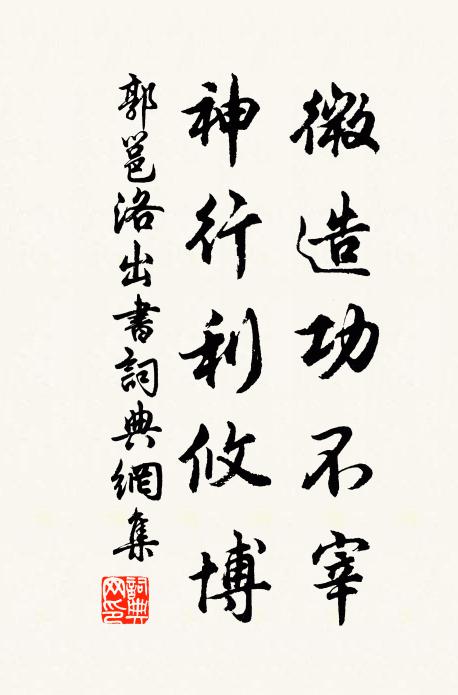 微造功不宰
神行利攸博
郭邕洛出書詞典網集
詞典网印